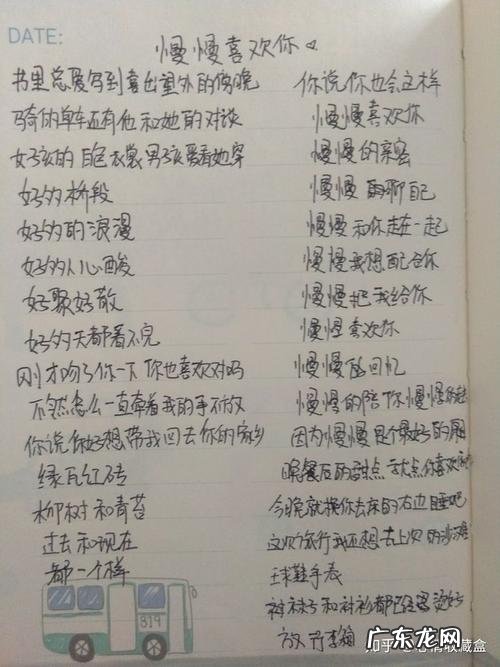 DATE:
慢慢喜欢你
书里总爱写到喜出望外的傍晚
骑的单车还有他和她的对谈
女孩的白色衣裳男孩爱看她穿
好多桥段
好多的浪漫
好多人心酸
好聚好散
好多天都看不完
刚才吻了你一下你也喜欢对吗
不然怎么一直牵着我的手不放
你说你好想带我回去你的家乡
绿瓦红砖
柳树和青苔
过去和现在
都一个样
你说你也会这样
慢慢喜欢你
慢慢的亲密
慢慢聊自己
慢慢和你走在一起
慢慢我想配合你
慢慢把我给你
慢慢喜欢你
慢慢的回忆
慢慢的陪你慢慢的老
因为慢慢是个最好的原
晚餐后的甜点 就点你喜欢
今晚就换你去床的右边睡吧
这次旅行我还想去上次的沙滩
球鞋手表
袜子和衬衫都已经烫好
放行李箱
819
知乎
收藏盒
广东龙网